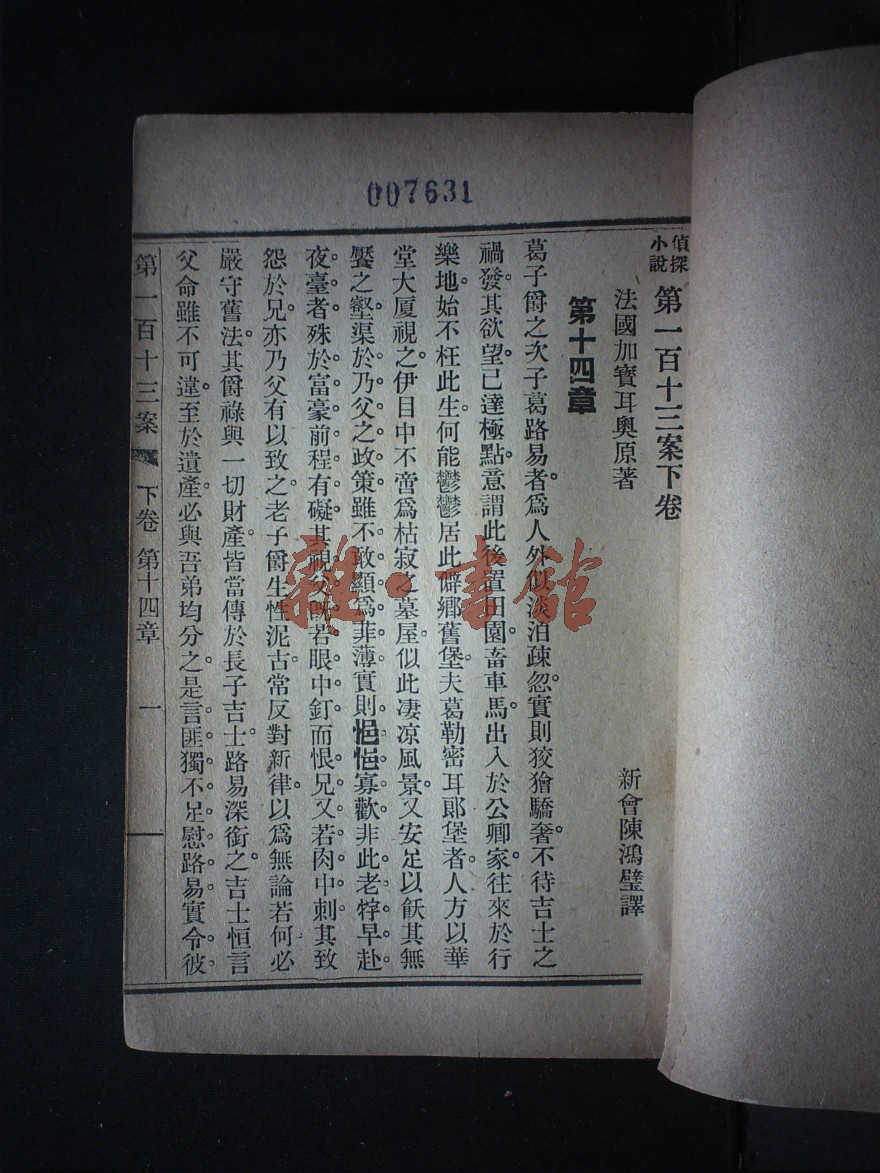 007631
偵探小說 第一百十三案下卷
法國加寶耳奧原著 新會陳鴻璧譯
第十四章
葛子爵之次子葛路易者爲人外似淡泊疎忽實則狡獪驕奢不待吉士之
禍發其欲望已達極點意謂此後置田園畜車馬出入於公卿家往來於行
樂地始不枉此生何能鬱鬱居此僻鄉舊堡夫葛勒密耳郞堡者人方以華
堂大厦視之伊目中不啻爲枯寂之墓屋似此凄凉風景又安足以飫其無
饜之壑渠於乃父之政策雖不敢顯爲菲薄實則悒悒寡歡非此老牸早赴
夜臺者殊於富豪前程有礙其視父旣若眼中釘而恨兄又若肉中刺其致
怨於兄亦乃父有以致之老子爵生性泥古常反對新律以爲無論若何必
嚴守舊法其爵祿與一切財產皆當傳於長子吉士路易深銜之吉士恒言
父命雖不可違至於遺產必與吾弟均分之是言匪獨不足慰路易實令彼
第一百十三案 下卷 第十四章 一
雜·書舘